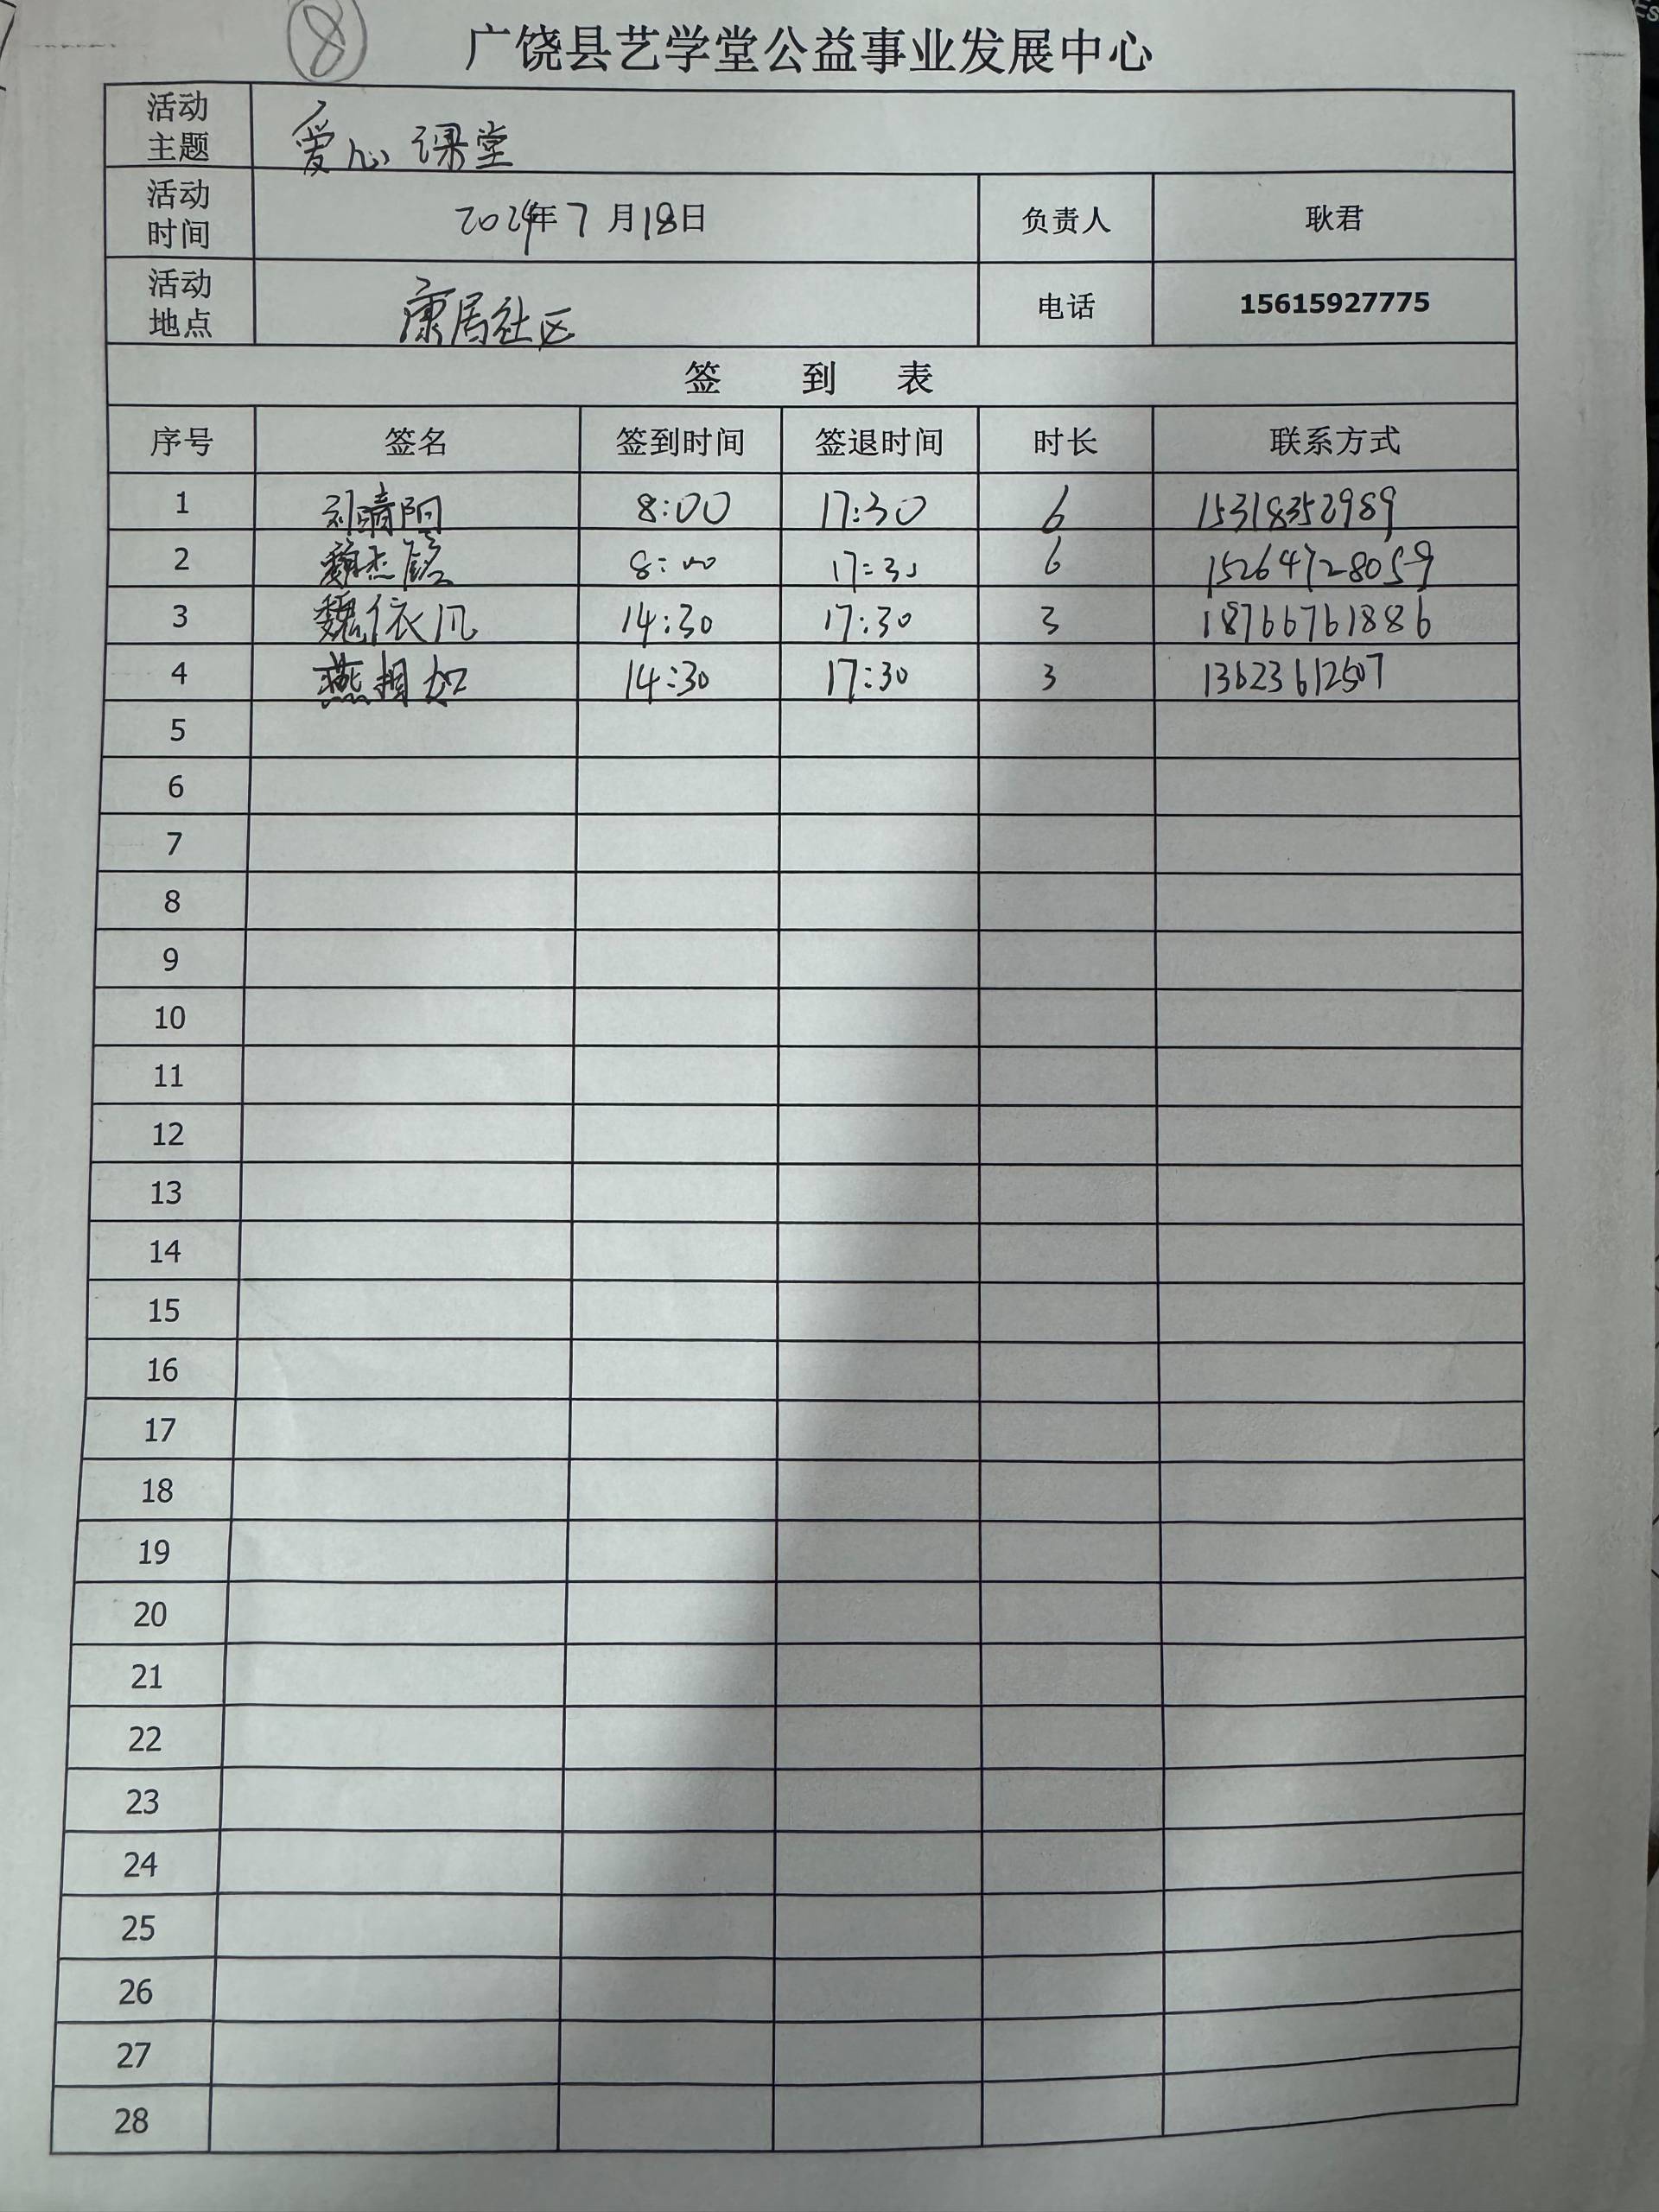 ⑧ 广饶县艺学堂公益事业发展中心
活动主题 爱心课堂
活动时间 2024年7月18日 负责人 耿君
活动地点 康居社区 电话 15615927775
签 到 表
序号 签名 签到时间 签退时间 时长 联系方式
1 刘晴阳 8:00 17:30 6 15318352989
2 魏杰铭 8:00 17:30 6 15264728059
3 魏依凡 14:30 17:30 3 18766761886
4 燕相如 14:30 17:30 3 13623612507
5
6
7
8
9
10
11
12
13
14
15
16
17
18
19
20
21
22
23
24
25
26
27
28